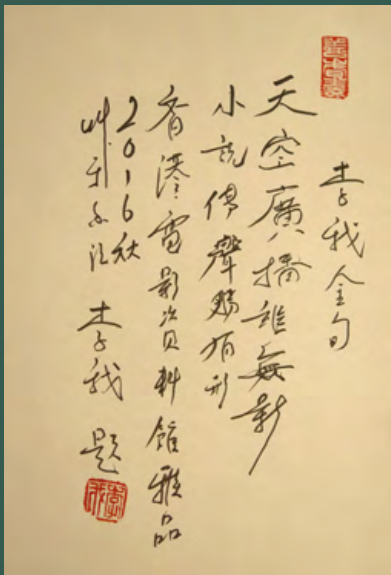 李我金句
天空廣播雖無影
小說傳聲勝有形
香港電影資料館雅品
2016秋
李我 題